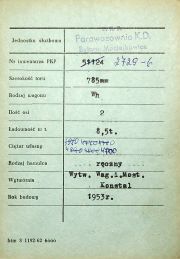 Jednostka służbowa
Parowozownia K.D.
Nr inwentarza PKP 2729-6
Szerokość toru 785mm
Rodzaj wagonu Wh
Ilość osi 2
Ładowność w t. 8,5t.
Ciężar własny
Rodzaj hamulca ręczny
Wytw. Wag.i.Most.
Wytwórnia Konstal
Rok budowy 1953r.